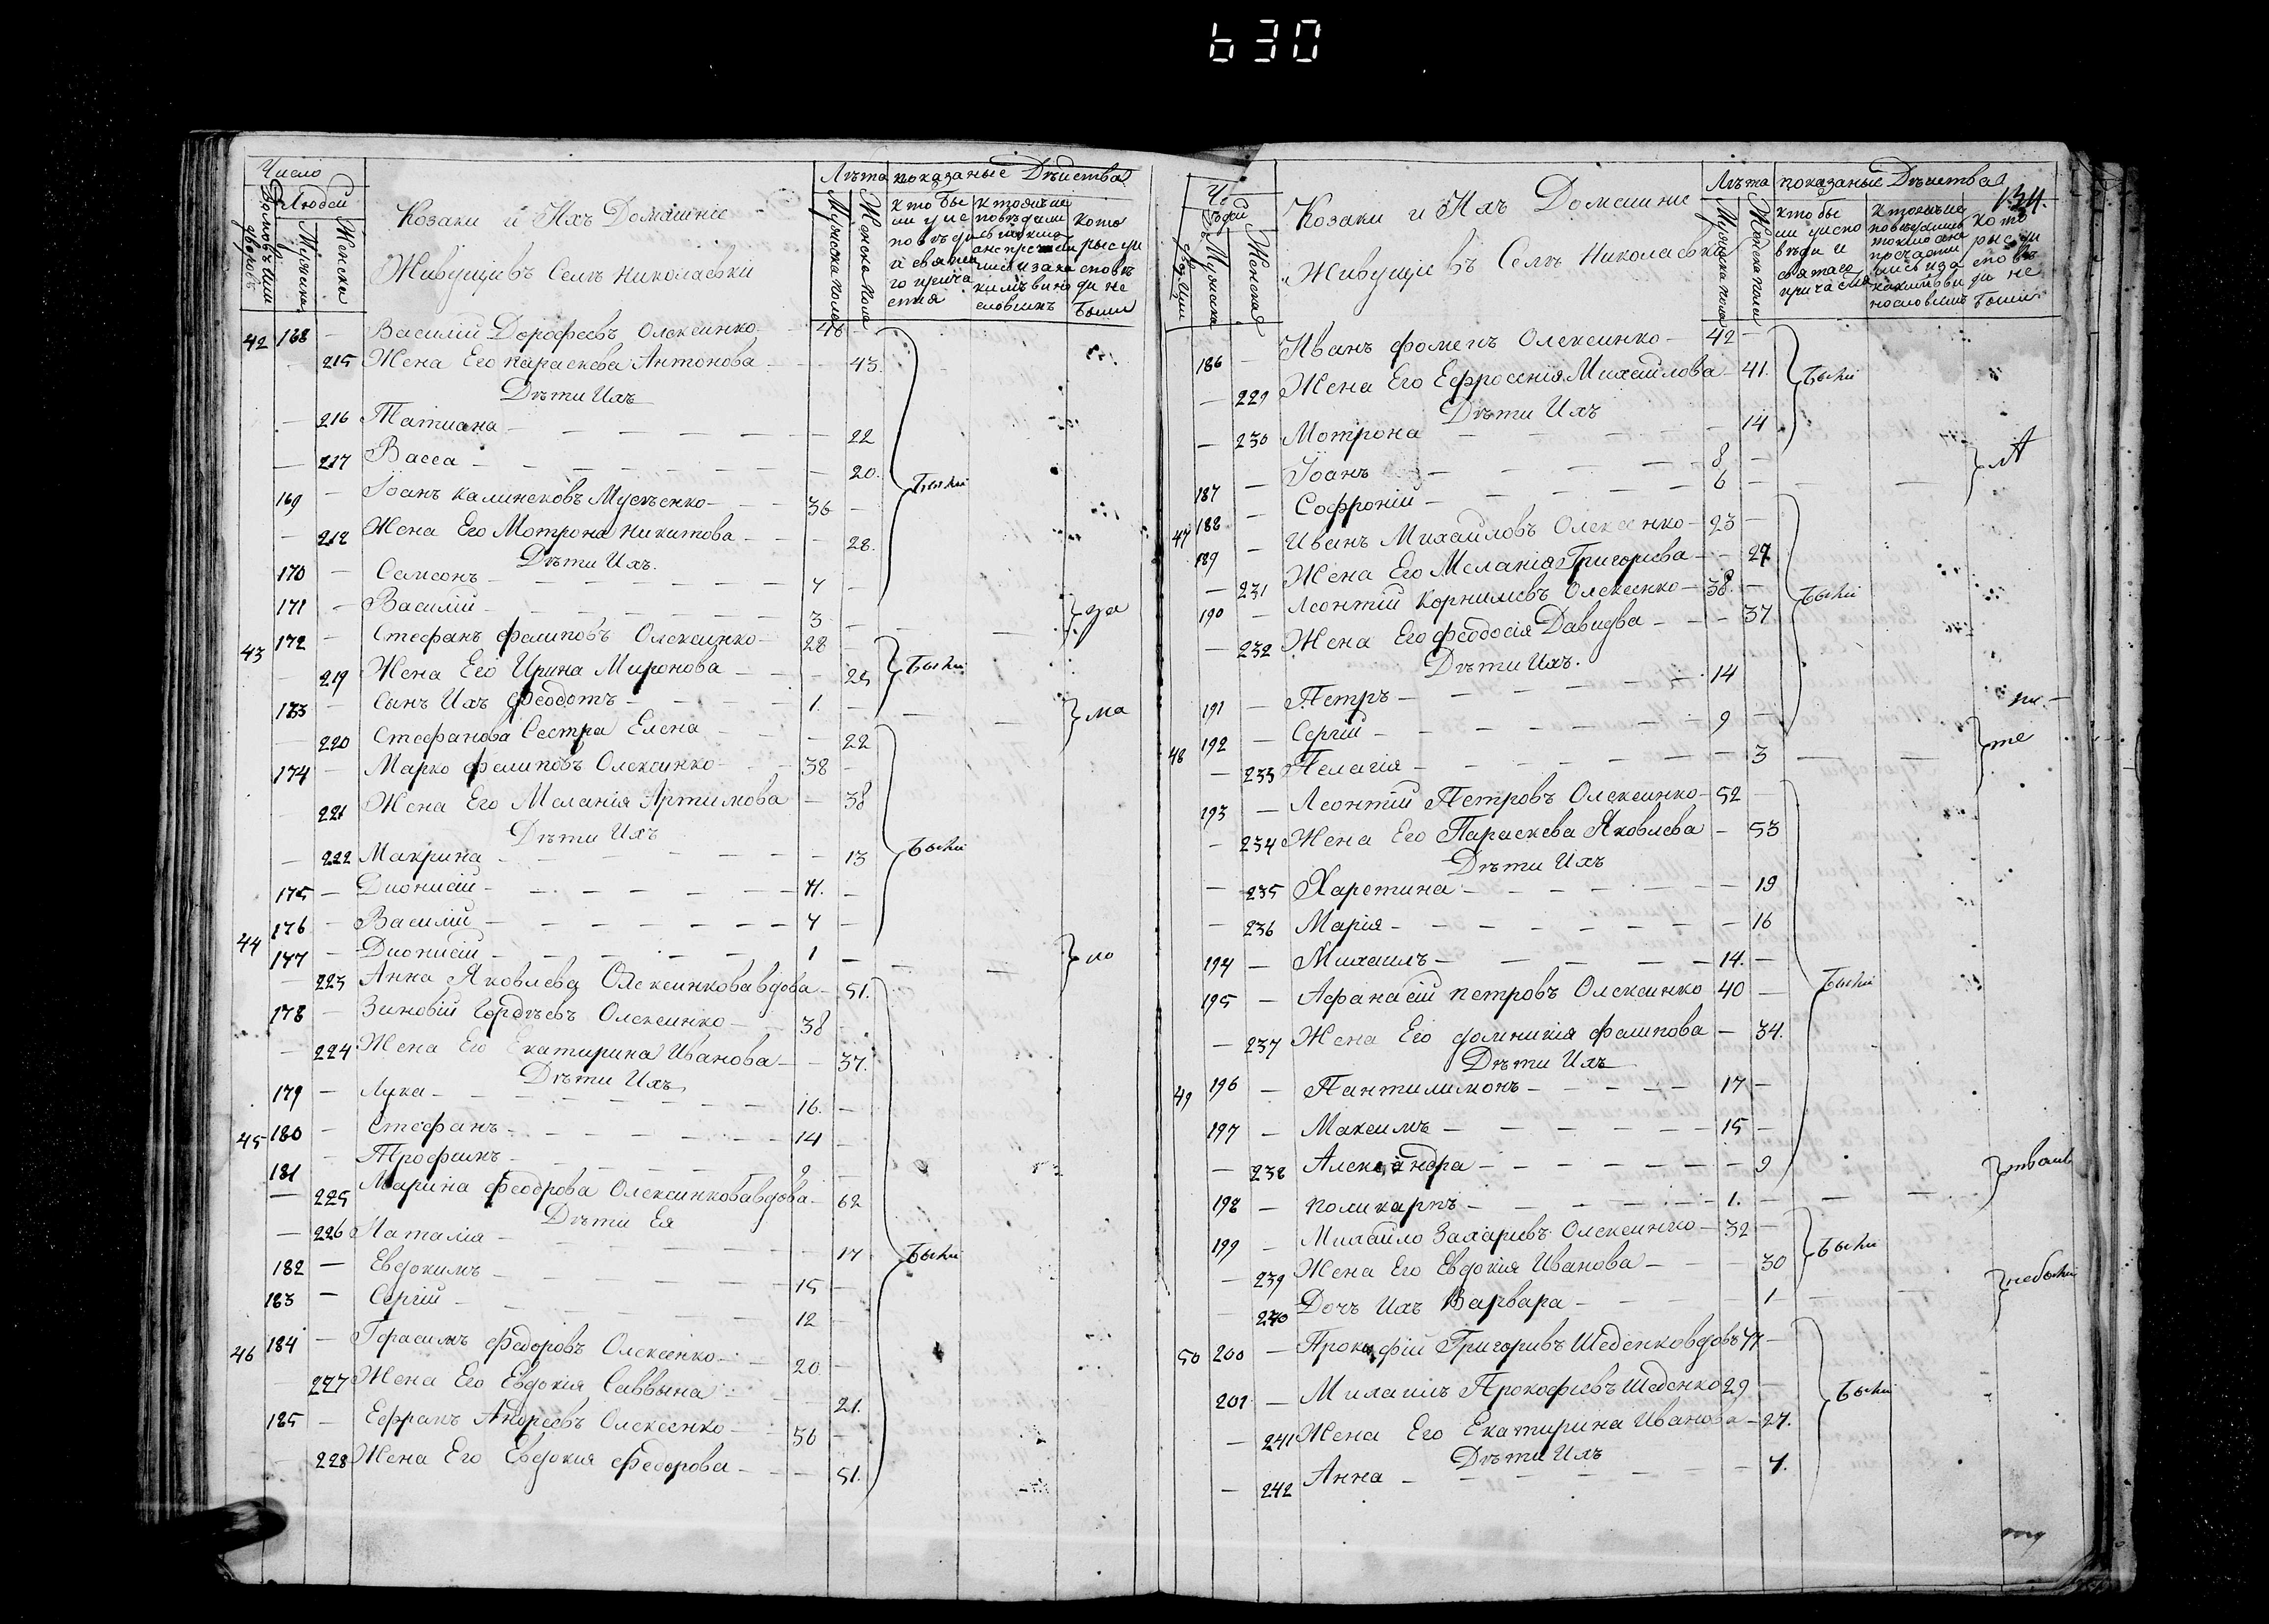 630
Число
Людей
Козаки и Ихъ Домашніе
Живущіе въ Селѣ Николаевки
Лѣта показаные Дѣиства
Мужска пола
Женска пола
42 168 — Василій Дорофеевъ Олексиенко — 46 —
215 Жена Его Параскева Антонова — 43.
Дѣти Ихъ
— 216 Татиана — 22
— 217 Васса — 20.
Были
169 — Іоанъ Мусѣенко — 36 —
— 212 Жена Его Мотрона Никитова — 28.
Дѣти Ихъ.
170 — Самсонъ — 7 —
171 — Василій — 3 — за
43 172 — Стефанъ Филиповъ Олексиенко — 28 —
— 219 Жена Его Ирина Миронова — 25 Были
173 — Сынъ Ихъ Феодотъ — 1. — ма
— 220 Стефанова Сестра Елена — 22
174 — Марко Филиповъ Олексиенко — 38 —
221 Жена Его Меланія Артимова — 38
Дѣти Ихъ
— 222 Макрина — 13 Были
175 — Дионисій — 11. —
44 176 — Василій — 7 —
177 — Дионисій — 1 — ло
— 223 Анна Яковлева Олексиенкова вдова — 51.
178 — Зиновій Гордѣевъ Олексиенко — 38 —
— 224 Жена Его Екатирина Иванова — 37.
Дѣти Ихъ
179 — Лука — 16. —
45 180 — Стефанъ — 14 —
181 — Трофимъ — 9 —
— 225 Марина Феодрова Олексиенкова вдова — 62
Дѣти Ея
— 226 Наталія — 17 Были
182 — Евдокимъ — 15 —
183 — Сергій — 12 —
46 184 — Герасимъ Федоровъ Олексеенко — 20 —
227 Жена Его Евдокія Саввына — 21.
185 — Ефрапъ Андреевъ Олексеенко — 50 —
228 Жена Его Евдокия Федорова — 51.
134.
Козаки и Ихъ Домашние
Живущіе въ Селѣ Николаевки
Лѣта показаные Дѣиства
186 — Иванъ Фоменъ Олексиенко — 42 —
— 229 Жена Его Ефросенія Михайлова — 41. Были
Дѣти Ихъ
— 230 Мотрона — 14
Іоанъ — 8 —
187 — Софроній — 6 —
47 188 — Иванъ Михайловъ Олексеенко — 23 —
189 Жена Его Меланія Григориева — 27
— 231
190 — Леонтій Корнилиевъ Олексеенко — 38. — Были
— 232 Жена Его Феодосія Давидва — 37
Дѣти Ихъ.
191 — Петръ — 14
48 192 — Сергій — 9 —
— 233 Пелагія — 3 — те
193 — Леонтій Петровъ Олексиенко — 52 —
— 234 Жена Его Параскева Яковлева — 53
Дѣти Ихъ
— 235 Харетина — 19
— 236 Марія — 16
194 — Михаилъ — 14. —
195 — Афанасій Петровъ Олексиенко 40 — Были
— 237 Жена Его Домникія Филипова — 34.
Дѣти Ихъ
49 196 — Пантилимонъ — 17 —
197 — Максимъ — 15 —
— 238 Александра — 9
198 — Поликарпъ — 1. —
199 — Михайло Захариевъ Олексиенко — 32 —
— 239 Жена Его Евдокія Иванова — 30 Были
— 240 Дочъ Ихъ Варвара — 1 — небыли
50 200 — Прокофій Григориевъ Шеденко вдовъ 77 —
201 — Михаилъ Прокофиевъ Шеденко 29 — Были
— 241 Жена Его Екатирина Иванова — 27.
Дѣти Ихъ
— 242 Анна — 7.